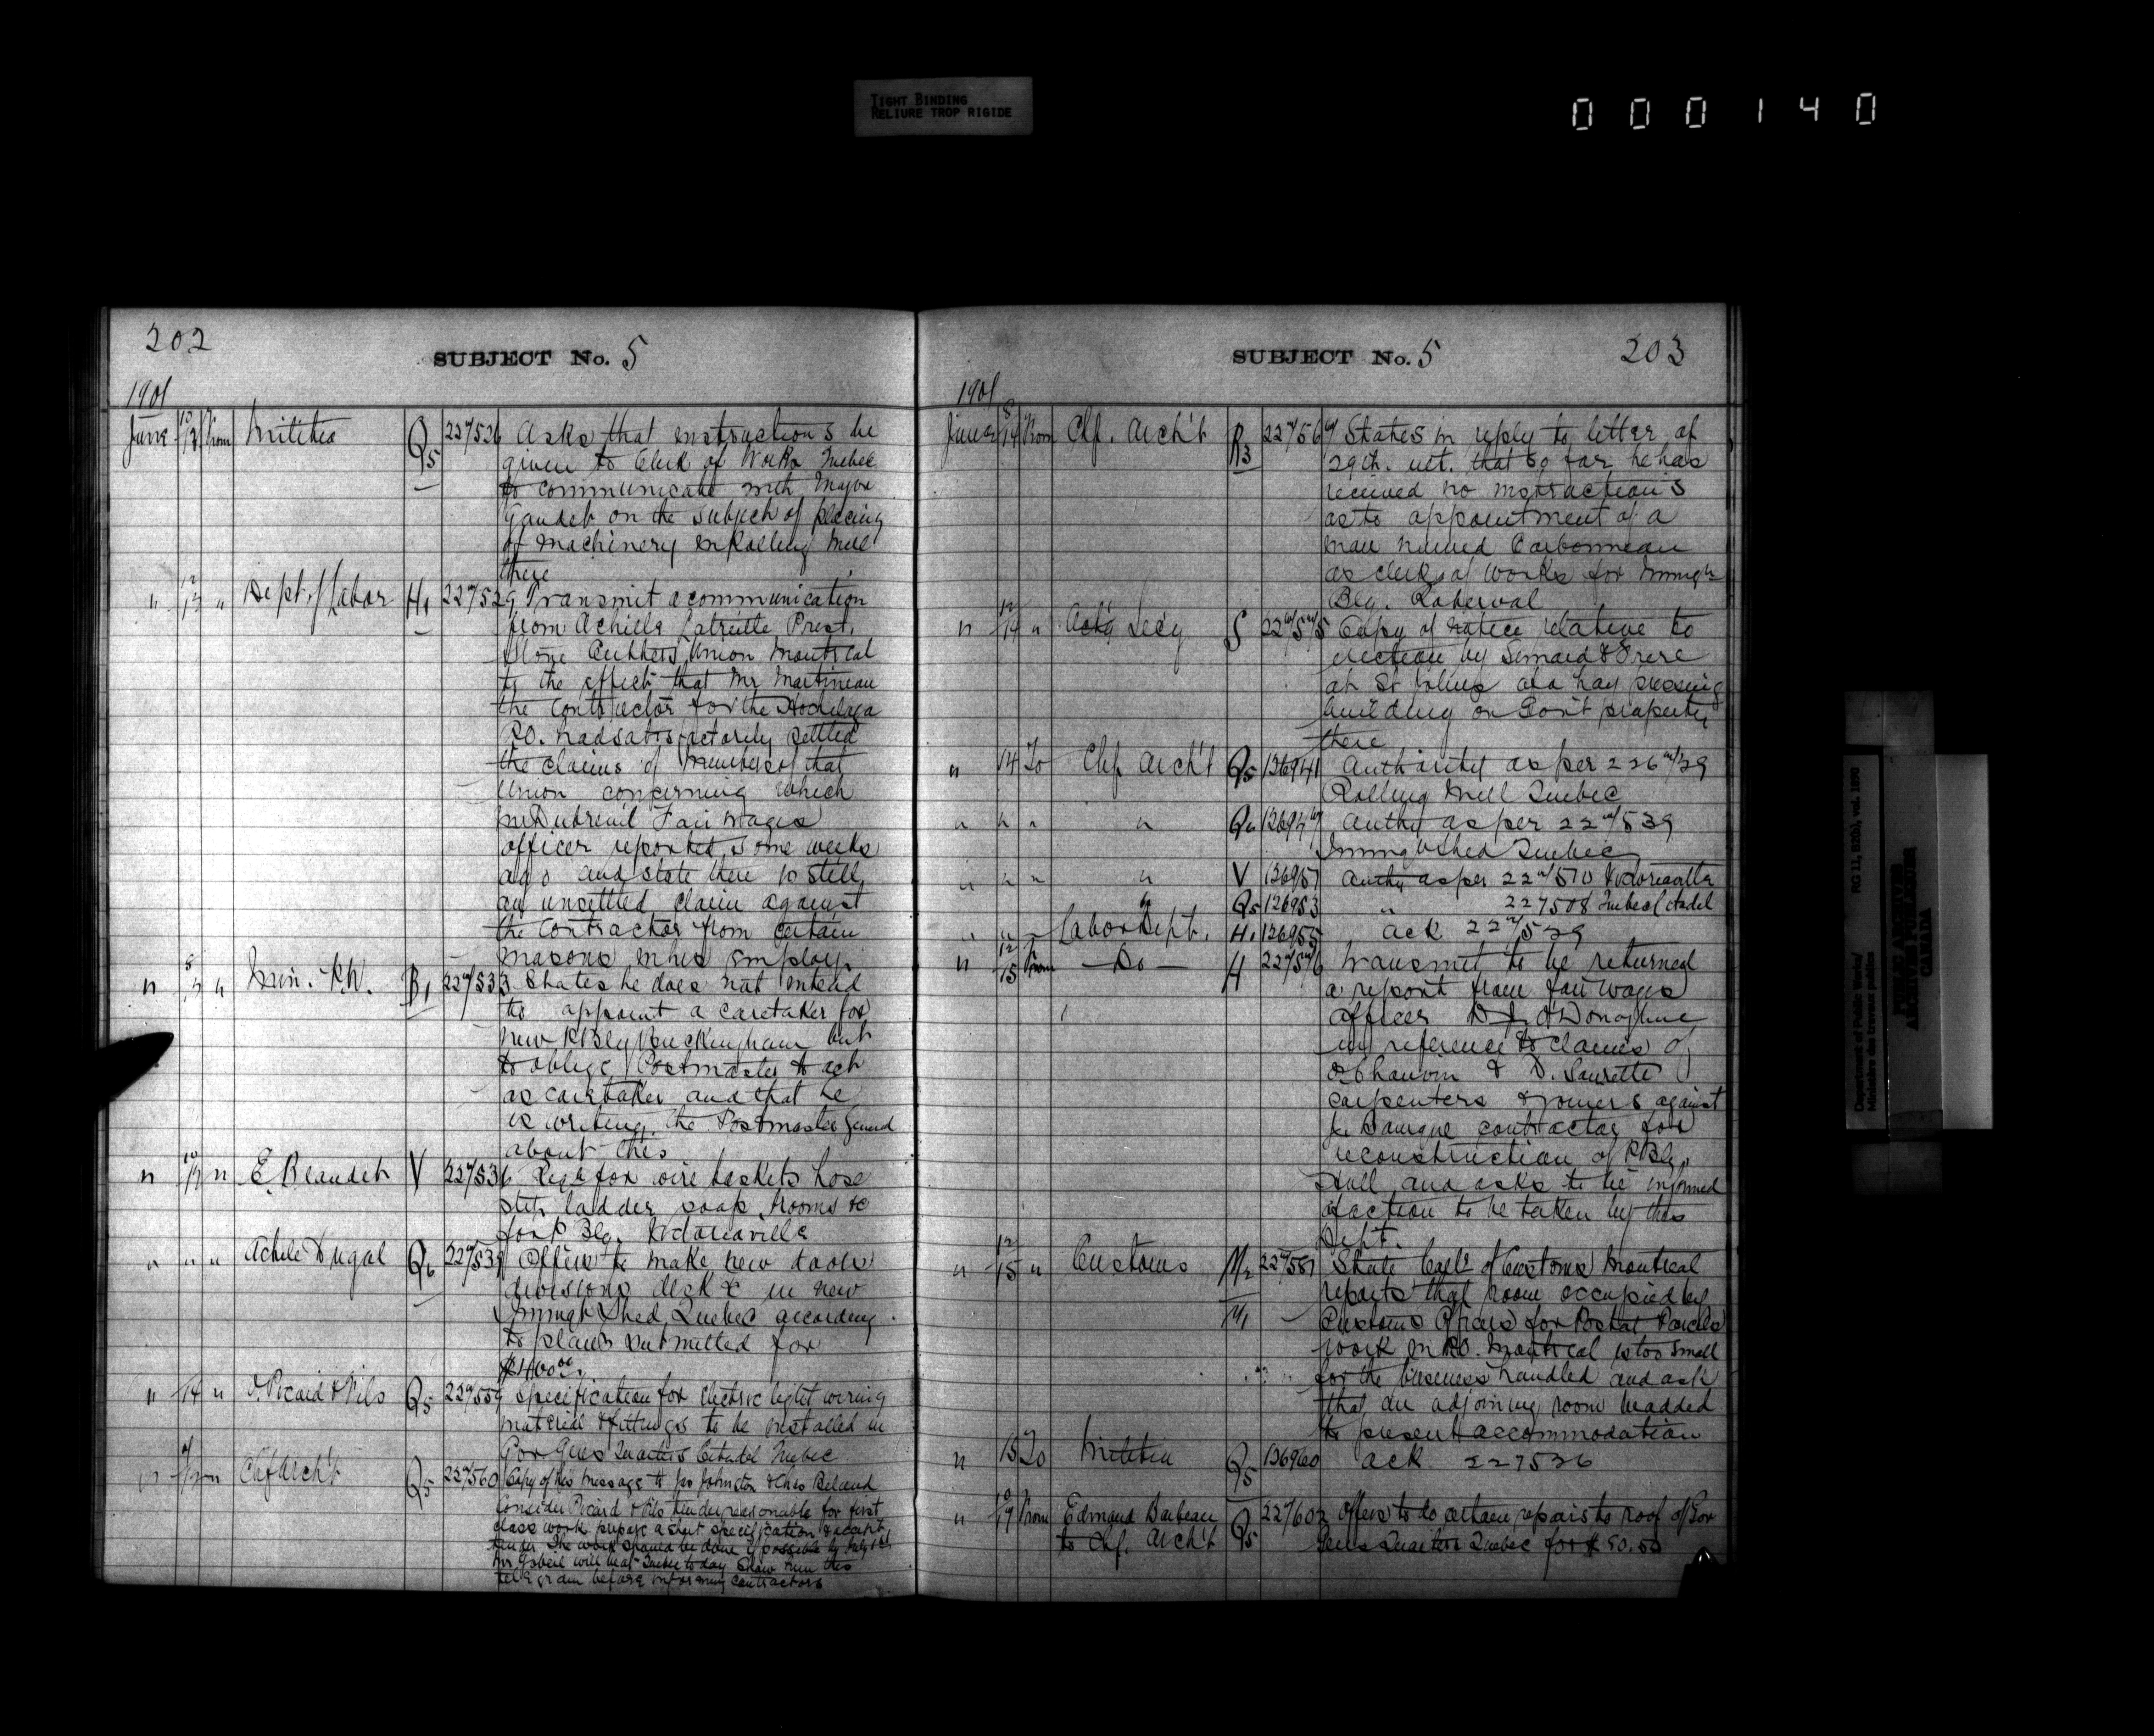 TIGHT BINDING
RELIURE TROP RIGIDE
000140
202
SUBJECT No. 5
1901
June 10/13 From Militia Q5 227526 Asks that instructions be
given to Clerk of Works Quebec
to communicate with Major
Gaudet on the subject of placing
of machinery in Rolling Mill
there
" 12/13 " Dept. of Labor H1 227529 Transmit a communication
from Achille Latreille Prest.
Stone Cutters Union Montreal
to the effect that Mr Martineau
the Contractor for the Hochelaga
P.O. had satisfactorily settled
the claims of members of that
Union concerning which
Mr Dubreuil Fair Wages
officer reported some weeks
ago and state there is still
an unsettled claim against
the Contractor from certain
masons in his employ.
" " Min. P.W. B1 227533 States he does not intend
to appoint a caretaker for
new P Blg Buckingham but
to oblige Postmaster to act
as caretaker and that he
is writing the Postmaster General
about this
" " E. Beaudet V 227536 Reqs for wire baskets hose
step ladder soap brooms &c
for P Blg. Victoriaville
" " " Achile Dugal Q6 227539 Offers to make new doors
divisions desk &c in new
Immigt Shed Quebec according
to plans submitted for
$1100.00.
" 14 " Picard & Fils Q5 227559 Specification for electric light wiring
material & fittings to be installed in
Gov Genls Quarters Citadel Quebec
" " Chf Arch't Q5 227560 Copy of his message to Jos Johnston & Chas Beland
Consider Picard & Fils tender reasonable for first
class work prepare a short specification & accept
tender The work should be done if possible by July 1st
Mr Gobeil will be at Quebec today Show him this
telegram before informing contractors
SUBJECT No. 5
203
1901
June 8/14 From Chf. Arch't R3 227567 States in reply to letter of
29th. ult. that so far he has
received no instructions
as to appointment of a
man named Carbonneau
as clerk of works for Immigt
Blg. Roberval
" 12/14 " Actg Secy S 227575 Copy of notice relative to
erection by Simard & Frere
at St of a hay pressing
building on Gov't property
there
" 14 To Chf Arch't Q5 136941 Authority as per 226729
Rolling Mill Quebec
" " " " Q6 136947 Authy as per 227539
Immigt Shed Quebec
" " " " V 136951 Authy as per 227510 Victoriaville
" Q5 136953 " 227508 Quebec Citadel
" " " Labor Dept. H1 136955 ack 227529
" 12/15 From — Do — H 227576 Transmit to be returned
a report from fair wages
officer D. J. O'Donoghue
in reference to claims of
Chauvin & D. Laurette
carpenters & joiners against
contractor for
reconstruction of P Blg.
Hull and asks to be informed
of action to be taken by this
Dept.
" 12/15 " Customs M2 227581 State Coll. of Customs Montreal
reports that room occupied by
M1 Customs Officers for Postal Parcels
work in P.O. Montreal is too small
for the business handled and ask
that an adjoining room be added
to present accommodation
" 15 To Militia Q5 136960 ack 227526
" 10/17 From Edmund Barbeau Q5 227602 Offers to do certain repairs to roof of Gov
to Chf. Arch't Genls Quarters Quebec for $50.50
Department of Public Works/
Ministère des travaux publics
RG 11, B2(b), vol. 1890
PUBLIC ARCHIVES
ARCHIVES PUBLIQUES
CANADA